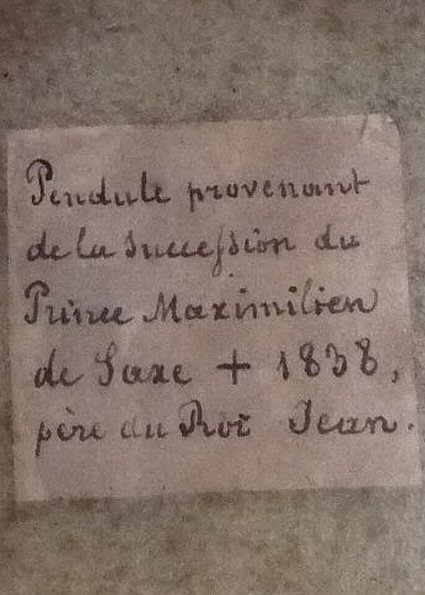 Pendule provenant
de la succession du
Prince Maximilien
de Saxe + 1838,
père du Roi Jean.